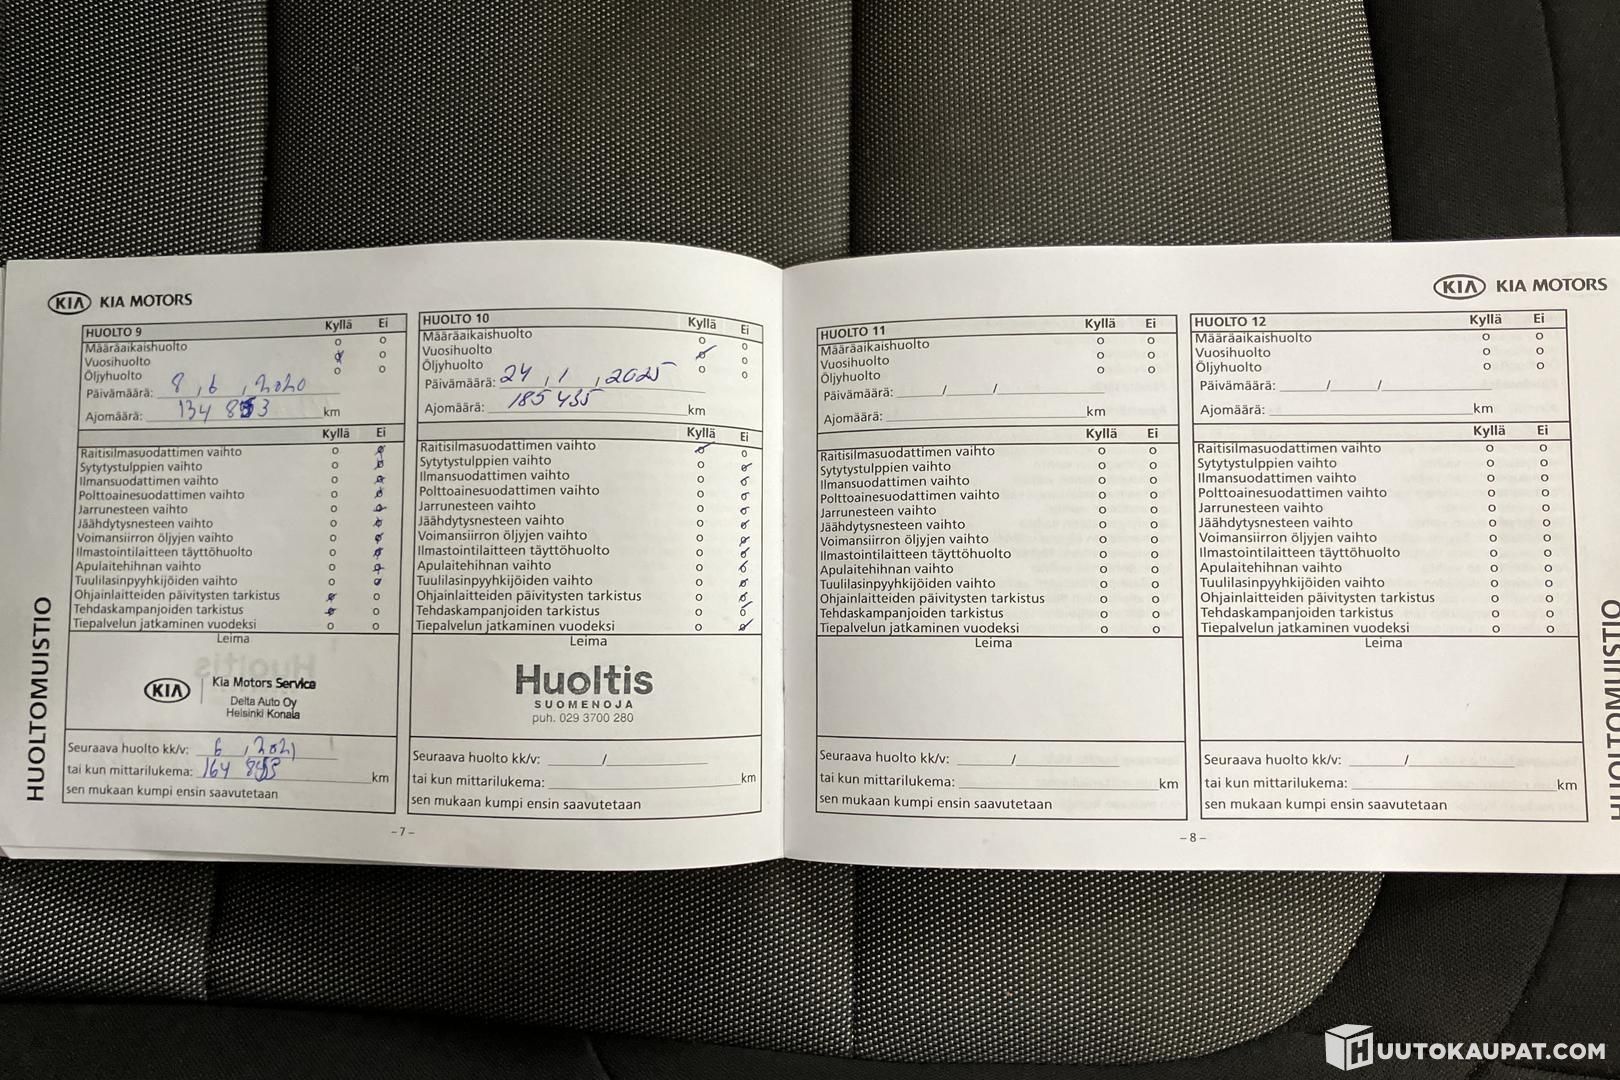 KIA KIA MOTORS
HUOLTO 9 Kyllä Ei
Määräaikaishuolto o o
Vuosihuolto o o
Öljyhuolto o o
Päivämäärä: 8 , 6 , 2020
Ajomäärä: 134 853 km
Kyllä Ei
Raitisilmasuodattimen vaihto o o
Sytytystulppien vaihto o o
Ilmansuodattimen vaihto o o
Polttoainesuodattimen vaihto o o
Jarrunesteen vaihto o o
Jäähdytysnesteen vaihto o o
Voimansiirron öljyjen vaihto o o
Ilmastointilaitteen täyttöhuolto o o
Apulaitehihnan vaihto o o
Tuulilasinpyyhkijöiden vaihto o o
Ohjainlaitteiden päivitysten tarkistus o o
Tehdaskampanjoiden tarkistus o o
Tiepalvelun jatkaminen vuodeksi o o
Leima
KIA Kia Motors Service
Delta Auto Oy
Helsinki Konala
Seuraava huolto kk/v: 6 , 2021
tai kun mittarilukema: 164 853 km
sen mukaan kumpi ensin saavutetaan
HUOLTO 10 Kyllä Ei
Määräaikaishuolto o o
Vuosihuolto o o
Öljyhuolto o o
Päivämäärä: 24 , 1 , 2025
Ajomäärä: 185 435 km
Kyllä Ei
Raitisilmasuodattimen vaihto o o
Sytytystulppien vaihto o o
Ilmansuodattimen vaihto o o
Polttoainesuodattimen vaihto o o
Jarrunesteen vaihto o o
Jäähdytysnesteen vaihto o o
Voimansiirron öljyjen vaihto o o
Ilmastointilaitteen täyttöhuolto o o
Apulaitehihnan vaihto o o
Tuulilasinpyyhkijöiden vaihto o o
Ohjainlaitteiden päivitysten tarkistus o o
Tehdaskampanjoiden tarkistus o o
Tiepalvelun jatkaminen vuodeksi o o
Leima
Huoltis
SUOMENOJA
puh. 029 3700 280
Seuraava huolto kk/v: /
tai kun mittarilukema: km
sen mukaan kumpi ensin saavutetaan
HUOLTOMUISTIO
– 7 –
KIA KIA MOTORS
HUOLTO 11 Kyllä Ei
Määräaikaishuolto o o
Vuosihuolto o o
Öljyhuolto o o
Päivämäärä: / /
Ajomäärä: km
Kyllä Ei
Raitisilmasuodattimen vaihto o o
Sytytystulppien vaihto o o
Ilmansuodattimen vaihto o o
Polttoainesuodattimen vaihto o o
Jarrunesteen vaihto o o
Jäähdytysnesteen vaihto o o
Voimansiirron öljyjen vaihto o o
Ilmastointilaitteen täyttöhuolto o o
Apulaitehihnan vaihto o o
Tuulilasinpyyhkijöiden vaihto o o
Ohjainlaitteiden päivitysten tarkistus o o
Tehdaskampanjoiden tarkistus o o
Tiepalvelun jatkaminen vuodeksi o o
Leima
Seuraava huolto kk/v: /
tai kun mittarilukema: km
sen mukaan kumpi ensin saavutetaan
HUOLTO 12 Kyllä Ei
Määräaikaishuolto o o
Vuosihuolto o o
Öljyhuolto o o
Päivämäärä: / /
Ajomäärä: km
Kyllä Ei
Raitisilmasuodattimen vaihto o o
Sytytystulppien vaihto o o
Ilmansuodattimen vaihto o o
Polttoainesuodattimen vaihto o o
Jarrunesteen vaihto o o
Jäähdytysnesteen vaihto o o
Voimansiirron öljyjen vaihto o o
Ilmastointilaitteen täyttöhuolto o o
Apulaitehihnan vaihto o o
Tuulilasinpyyhkijöiden vaihto o o
Ohjainlaitteiden päivitysten tarkistus o o
Tehdaskampanjoiden tarkistus o o
Tiepalvelun jatkaminen vuodeksi o o
Leima
Seuraava huolto kk/v: /
tai kun mittarilukema: km
sen mukaan kumpi ensin saavutetaan
HUOLTOMUISTIO
– 8 –
HUUTOKAUPAT.COM